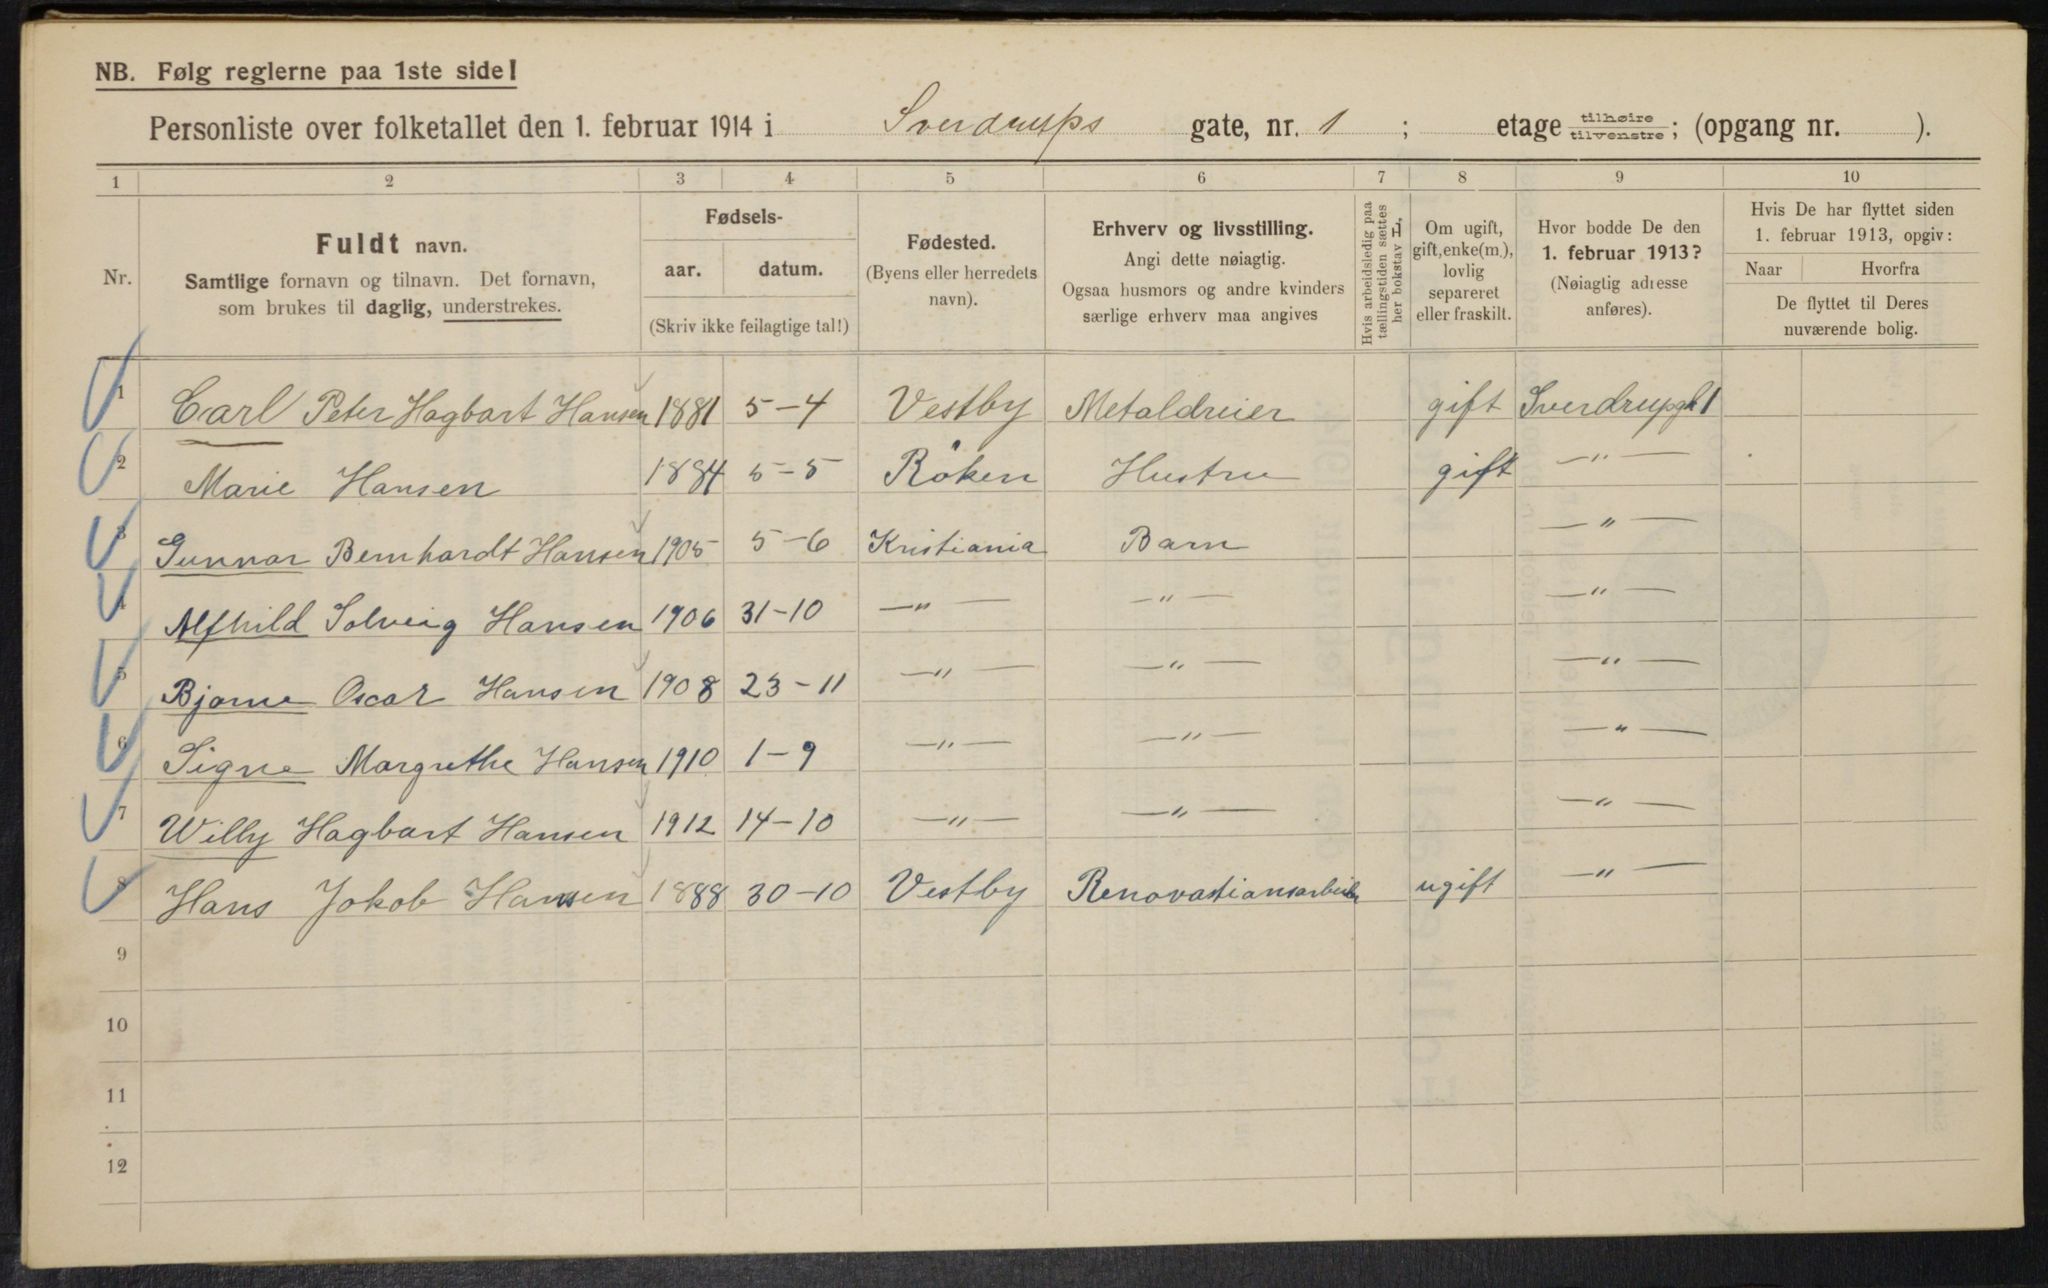 NB. Følg reglerne paa 1ste side!
Personliste over folketallet den 1. februar 1914 i Sverdrups gate, nr. 1 ; etage tilhøire tilvenstre; (opgang nr. ).
1 2 3 4 5 6 7 8 9 10
Nr.
Fuldt navn.
Samtlige fornavn og tilnavn. Det fornavn,
som brukes til daglig, understrekes.
Fødsels-
aar. datum.
(Skriv ikke feilagtige tal!)
Fødested.
(Byens eller herredets
navn).
Erhverv og livsstilling.
Angi dette nøiagtig.
Ogsaa husmors og andre kvinders
særlige erhverv maa angives
Hvis arbeidsledig paa
tællingstiden sættes
her bokstav L.
Om ugift,
gift, enke(m.),
lovlig
separeret
eller fraskilt.
Hvor bodde De den
1. februar 1913?
(Nøiagtig adresse
anføres).
Hvis De har flyttet siden
1. februar 1913, opgiv:
Naar Hvorfra
De flyttet til Deres
nuværende bolig.
1 Carl Peter Hagbart Hansen 1881 5-4 Vestby Metaldreier gift Sverdrupgt 1
2 Marie Hansen 1884 5-5 Röken Hustru gift —"—
3 Gunnar Bernhardt Hansen 1905 5-6 Kristiania Barn —"—
4 Alfhild Solveig Hansen 1906 31-10 —"— —"— —"—
5 Bjarne Oscar Hansen 1908 23-11 —"— —"— —"—
6 Signe Margrethe Hansen 1910 1-9 —"— —"— —"—
7 Willy Hagbart Hansen 1912 14-10 —"— —"— —"—
8 Hans Jakob Hansen 1888 30-10 Vestby Renovationsarbeider ugift —"—
9
10
11
12